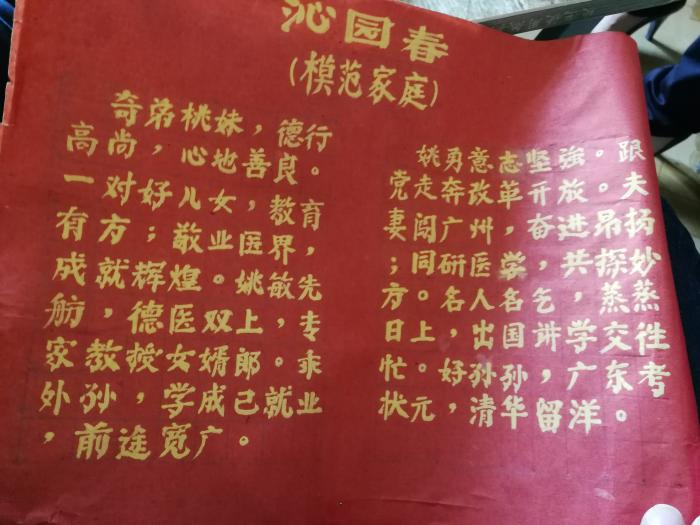 沁园春
(模范家庭)
奇弟桃妹，德行
高尚，心地善良。
一对好儿女，教育
有方；敬业医界，
成就辉煌。姚敏先
舫，德医双上，专
家教授女婿郎。乖
外孙，学成已就业
，前途宽广。
姚勇意志坚强。跟
党走奔改革开放。夫
妻闯广州，奋进昂扬
；同研医学，共探妙
方。名人名乞，蒸蒸
日上，出国讲学交往
忙。好孙孙，广东考
状元，清华留洋。